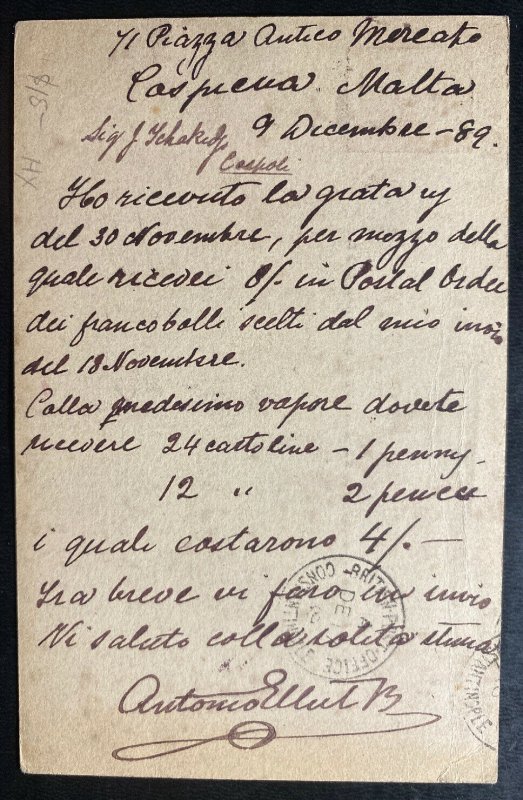 71 Piazza Antico Mercato
Cospicua Malta
9 Dicembre - 89.
Sig J
Cospoli
Ho ricevuto la grata
del 30 Novembre, per mezzo della
quale ricevei 8/- in Postal Order
dei francobolli scelti dal mio invio
del 18 Novembre.
Colla medesimo vapore dovete
ricevere 24 cartoline - 1 penny.
12 " 2 pence
i quali costarono 4/. -
Fra breve vi farò un invio
Vi saluto colla solita stima
Antonio Ellul B
BRITISH POST OFFICE
CONSTANTINOPLE
DE